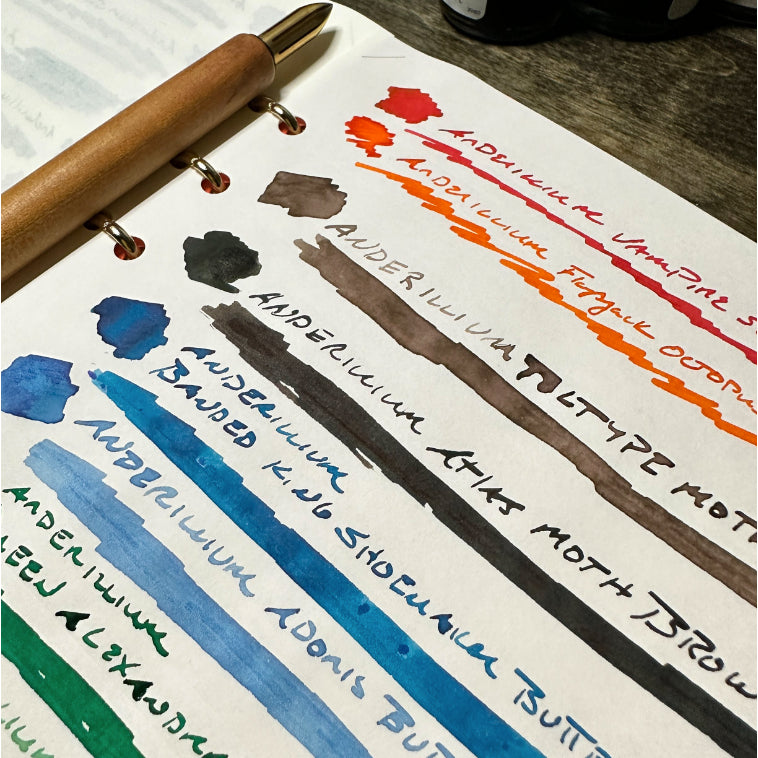 ANDERILLIUM VAMPIRE S
ANDERILLIUM Flapjack OCTOPUS
ANDERILLIUM TULTYPE MOTH
ANDERILLIUM Atlas MOTH BROW
ANDERILLIUM
BANDED KING SHOEMAKER BUTTE
ANDERILLIUM ADONIS BUTT
ANDERILLIUM
EEN ALEXANDR